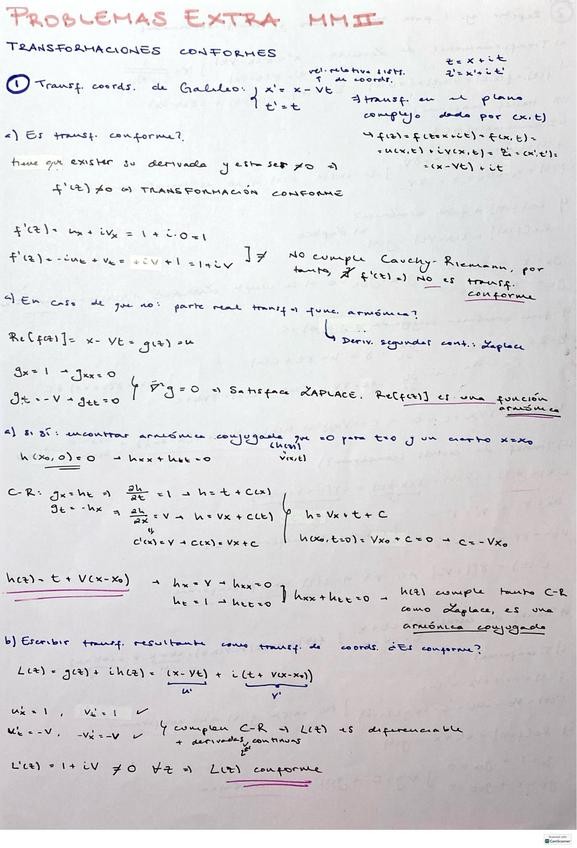 PROBLEMAS EXTRA MMII
TRANSFORMACIONES CONFORMES
① Transf. coords. de Galileo: { x' = x - Vt
t' = t
vel. relativa sists. de coords.
z = x + it
z' = x' + it'
⇒ transf. en el plano
complejo dado por (x,t)
↳ f(z) = f(x+it) = f(x,t) =
= u(x,t) + iv(x,t) = z' = (x',t') =
= (x-Vt) + it
a) Es transf. conforme?
tiene que existir su derivada y esta ser ≠0 ⇒
f'(z) ≠ 0 ⇒ TRANSFORMACIÓN CONFORME
f'(z) = ux + ivx = 1 + i·0 = 1
f'(z) = -iut + vt = +iV + 1 = 1+iV
] ≠ No cumple Cauchy-Riemann, por
tanto, ∄ f'(z) ⇒ NO es transf.
conforme
c) En caso de que no: parte real transf ⇒ func. armónica?
↳ Deriv. segundas cont.: Laplace
Re[f(z)] = x - Vt = g(z) = u
gx = 1 → gxx = 0
gt = -V → gtt = 0
∇²g = 0 ⇒ Satisface LAPLACE. Re[f(z)] es una función
armónica
a) si sí: encontrar armónica conjugada que =0 para t=0 y un cierto x=x0
v(x,t)
h(x0,0) = 0 → hxx + htt = 0
C-R: gx = ht ⇒ ∂h/∂t = 1 → h = t + C(x)
gt = -hx ⇒ ∂h/∂x = V → h = Vx + C(t)
C'(x) = V → C(x) = Vx + C
h = Vx + t + C
h(x0, t=0) = Vx0 + C = 0 → C = -Vx0
h(z) = t + V(x-x0) → hx = V → hxx = 0
ht = 1 → htt = 0
hxx + htt = 0 → h(z) cumple tanto C-R
como Laplace, es una
armónica conjugada
b) Escribir transf. resultante como transf. de coords. ¿Es conforme?
L(z) = g(z) + ih(z) = (x-Vt) + i(t + V(x-x0))
u' v'
u'x = 1, v't = 1 ✓
u't = -V, -v'x = -V ✓
y cumplen C-R ⇒ L(z) es diferenciable
+ derivadas continuas
L'(z) = 1 + iV ≠ 0 ∀z ⇒ L(z) conforme
CamScanner